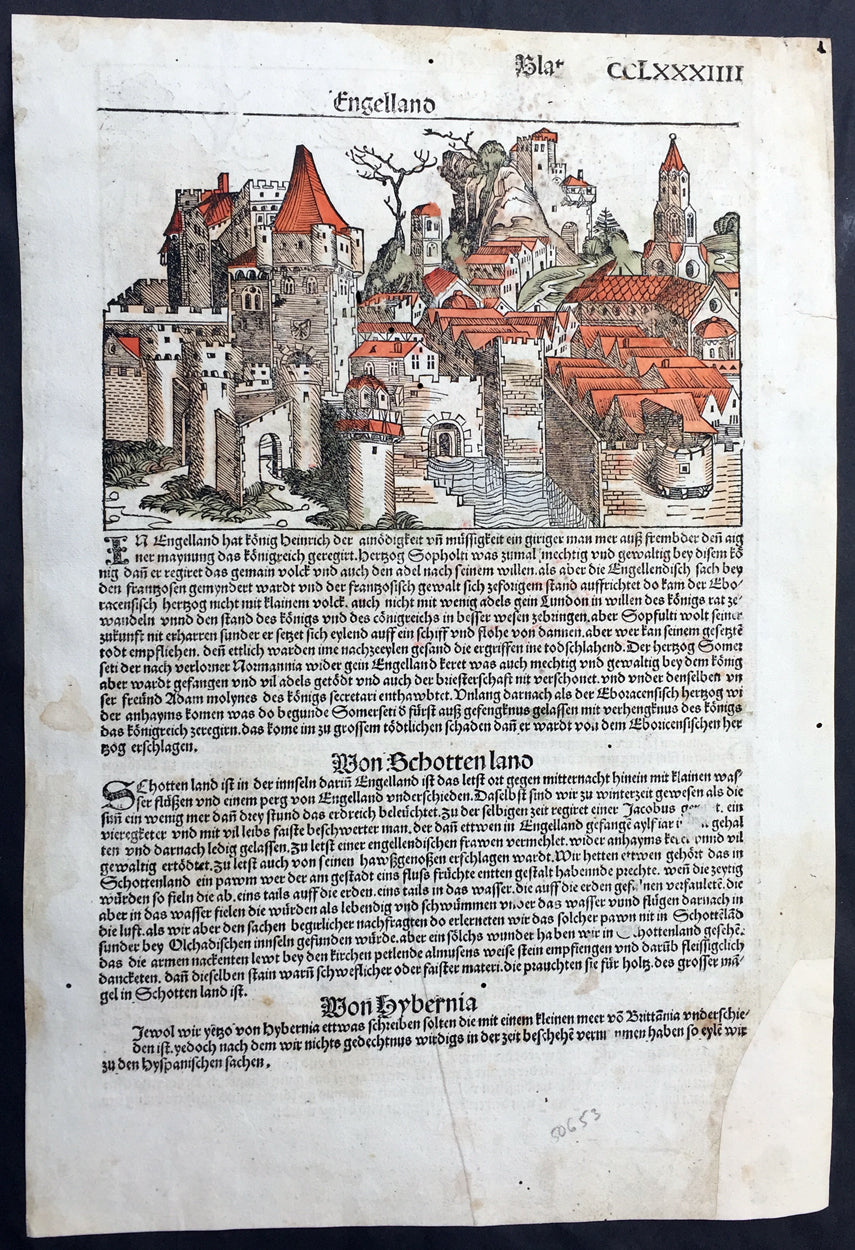 Blat CCLXXXIIII
Engelland
IN Engelland hat könig Heinrich der ainödigkeit vñ müssigkeit ein giriger man mer auß frembder deñ aig
ner maynung das königreich geregirt. Hertzog Sopholti was zumal mechtig vnd gewaltig bey disem kö
nig dañ er regiret das gemain volck vnd auch den adel nach seinem willen. als aber die Engellendisch sach bey
den frantzosen gemyndert wardt vnd der frantzosisch gewalt sich zeforigem stand auffrichtet do kam der Ebo/
racensisch hertzog nicht mit klainem volck. auch nicht mit wenig adels gein Lundon in willen des königs rat ze/
wandeln vnnd den stand des königs vnd des cönigreichs in besser wesen zebringen. aber Sopfulti wolt seiner
zukunft nit erharren sunder er setzet sich eylend auff ein schiff vnd flohe von dannen. aber wer kan seinem gesetztē
todt empfliehen. deñ ettlich warden ime nachzeeylen gesand die ergriffen ine todschlahend. Der hertzog Somer
seti der nach verlorner Normannia wider gein Engelland keret was auch mechtig vnd gewaltig bey dem könig
aber wardt gefangen vnd vil adels getödt vnd auch der briesterschaft nit verschonet. vnd vnder denselben vn
ser freünd Adam molynes des königs secretari enthawbtet. Vnlang darnach als der Eboracensisch hertzog wi
der anhayms komen was do begunde Somerseti d̕ fürst auß gefengknus gelassen mit verhengknus des königs
das königreich zeregirn. das kome im zu grossem tödtlichen schaden dañ er wardt von dem Eboricensischen her
tzog erschlagen.
Von Schotten land
SChotten land ist in der innseln dariñ Engelland ist das letst ort gegen mitternacht hinein mit klainen was/
ser flüßen vnd einem perg von Engelland vnderschieden. Daselbst sind wir zu winterzeit gewesen als die
suñ ein wenig mer dañ drey stund das erdreich beleüchtet. Zu der selbigen zeit regiret einer Jacobus ein
vieregketer vnd mit vil leibs faiste beschwerter man. der dañ ettwen in Engelland gefangē aylf iar gehal
ten vnd darnach ledig gelassen. Zu letst einer engellendischen frawen vermehlet. wider anhayms vnnd vil
gewaltig ertödtet. Zu letst auch von seinen hawßgenoßen erschlagen wardt. Wir hetten ettwen gehört das in
Schottenland ein pawm wer der am gestadt eins fluss früchte entten gestalt habennde prechte. weñ die zeytig
würden so fieln die ab. eins tails auff die erden. eins tails in das wasser. die auff die erden verfaületē. die
aber in das wasser fielen die würden als lebendig vnd schwümmen vnder das wasser vnnd flügen darnach in
die luft. als wir aber den sachen begirlicher nachfragten do erlerneten wir das solcher pawn nit in Schottēlād
sunder bey Olchadischen innseln gefunden würde. aber ein sölchs wunder haben wir in Schottenland gesehē.
das die armen nackenten lewt bey den kirchen petlende almusens weise stein empfiengen vnd darūb fleissigclich
dancketen. dañ dieselben stain warñ schweflicher oder faister materi. die prauchten sie für holtz. des grosser mā/
gel in Schotten land ist.
Von Hybernia
Jewol wir yetzo von Hybernia ettwas schreiben solten die mit einem kleinen meer vō Brittānia vnderschie/
den ist. yedoch nach dem wir nichts gedechtnus wirdigs in der zeit beschehē haben so eylē wir
zu den Hyspanischen sachen.
50653